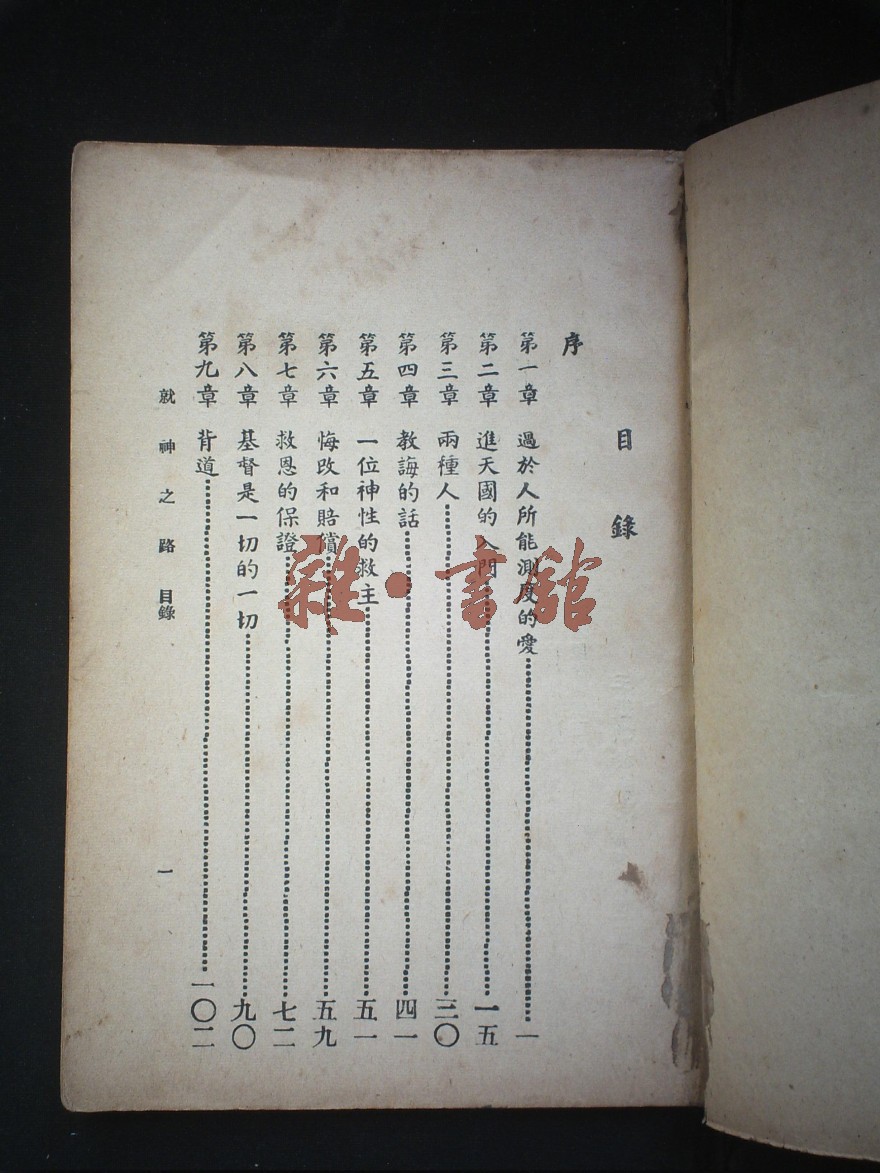 目錄
序
第一章 過於人所能測度的愛 一
第二章 進天國的入門 一五
第三章 兩種人 三〇
第四章 教誨的話 四一
第五章 一位神性的救主 五一
第六章 悔改和賠償 五九
第七章 救恩的保證 七二
第八章 基督是一切的一切 九〇
第九章 背道 一〇二
就神之路 目錄
一
雜·書館